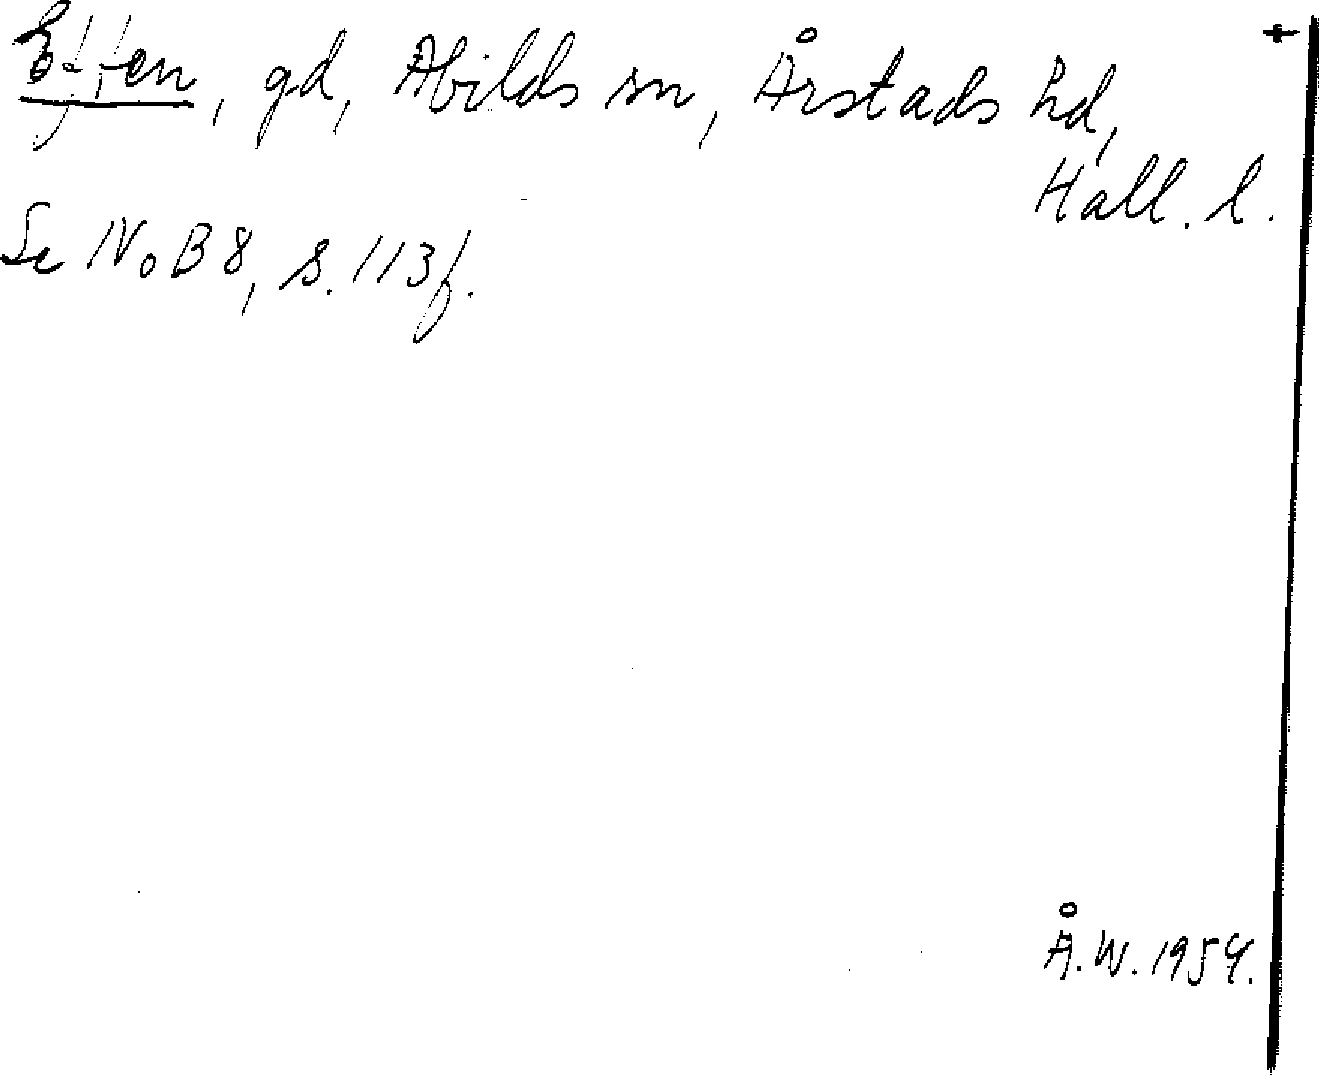 Eften, gd, Abilds sn, Årstads hd, +
Hall. l.
Se NoB 8, s. 113 f.
Å.W. 1954.